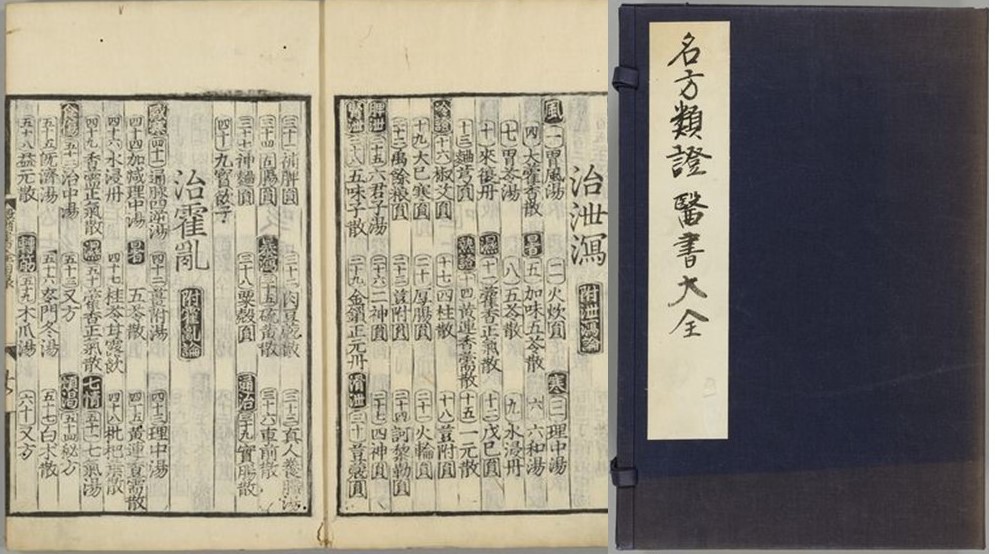 名方類證醫書大全
治泄瀉 附泄瀉論
風 一 胃風湯 二 火炊圓 寒 三 理中湯
四 大藿香散 暑 五 加味五苓散 六 六和湯
七 胃苓湯 八 五苓散 九 水浸丹
十 來復丹 濕 十一 藿香正氣散 十二 戊巳圓
十三 麯芎圓 熱證 十四 黄連香薷散 十五 一元散
冷證 十六 椒艾圓 十七 四柱散 十八 荳附圓
十九 大巳寒圓 二十 厚腸圓 二十一 火輪圓
二十二 禹餘粮圓 二十三 荳附圓 二十四 訶黎勒圓
脾泄 二十五 六君子湯 二十六 二神圓 二十七 四神圓
腎泄 二十八 五味子散 二十九 金鎖正元丹 滑泄 三十 荳蔻圓
三十一 補脾圓 三十二 肉豆蔻散 三十三 真人養臟湯
三十四 固腸圓 暴瀉 三十五 硫黄散 三十六 車前散
三十七 神麯圓 三十八 粟殼圓 通治 三十九 實腸散
四十 九寶飲子
治霍亂 附霍亂論
四十一 通脉四逆湯 四十二 薑附湯 四十三 理中湯
四十四 加減理中湯 暑 五苓散 四十五 黄連香薷散
四十六 水浸丹 四十七 桂苓甘露飲 四十八 枇杷葉散
四十九 正氣散 濕 五十 藿香正氣散 七情 五十一 七氣湯
食傷 五十二 治中湯 五十三 又方 煩渴 五十四 秘方
五十五 既濟湯 五十六 麥門冬湯 五十七 白朮散
五十八 益元散 轉筋 五十九 木瓜湯 六十 又方